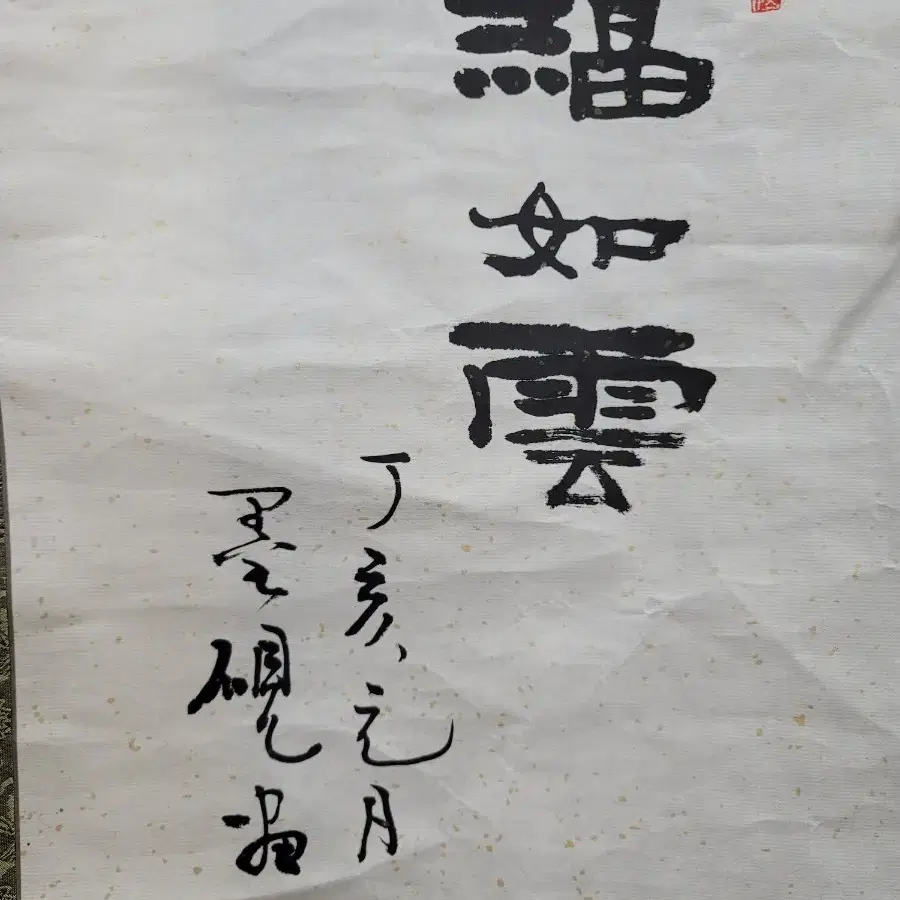 福如雲
丁亥元月
墨硯